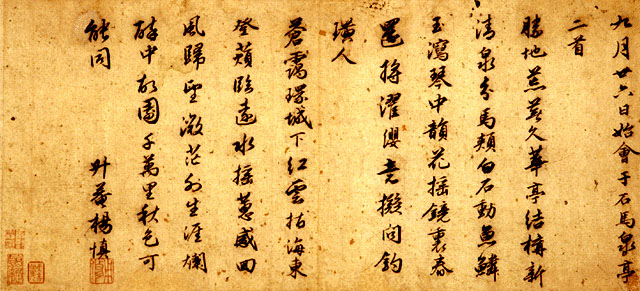 九月廿六日始會于石馬泉亭
二首
勝地荒蕪久華亭結構新
清泉分馬頰白石動魚鱗
玉瀉琴中韻花搖鏡裏春
還將濯纓意擬問釣
璜人
蒼靄環城下紅雲拍海東
臨遠水搖蕙感回
風歸望微茫外生涯爛
醉中故園千萬里秋色可
能同
升菴楊慎